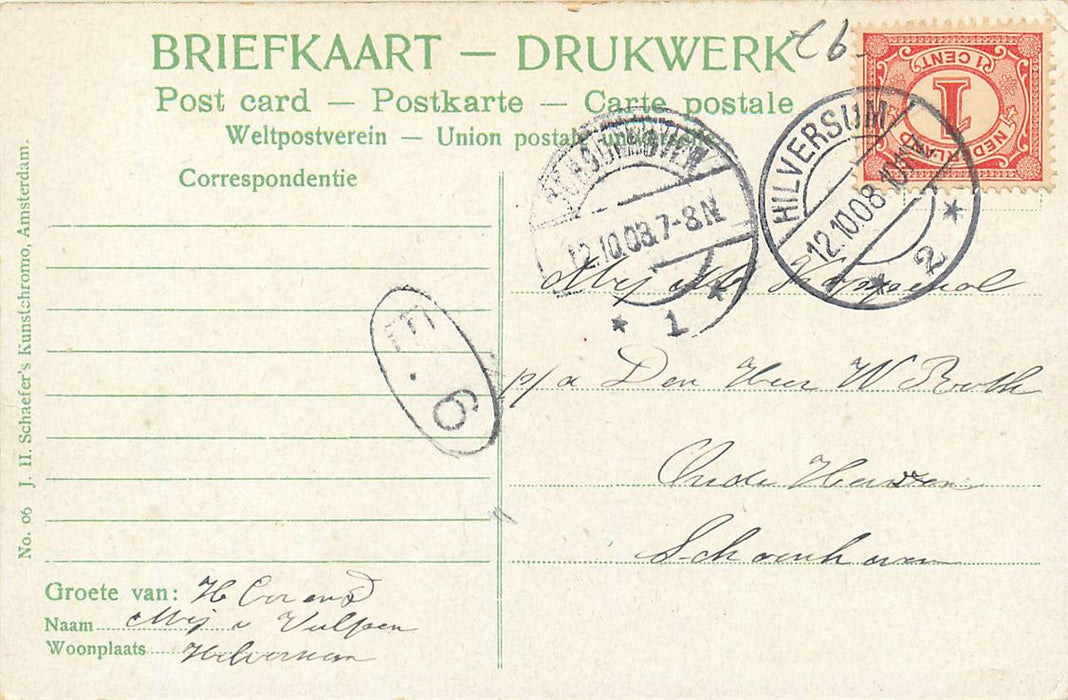 BRIEFKAART — DRUKWERK
Post card — Postkarte — Carte postale
Weltpostverein — Union postale universelle
Correspondentie
1 CENT
1
NEDERLAND
HILVERSUM
12.10.08.10
2
12.10.08.7-8N
1
6
p/a Den Heer W
Oude Haven
Schoonhoven
No. 06 J. H. Schaefer's Kunstchromo, Amsterdam.
Groete van: H
Naam Mej v Vulpen
Woonplaats Hilversum